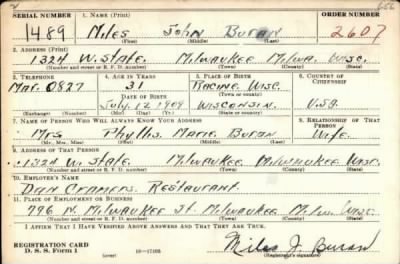 SERIAL NUMBER 1. NAME (Print) ORDER NUMBER
1489 Niles John Buran 2607
(First) (Middle) (Last)
2. ADDRESS (Print)
1324 W. State. Milwaukee Milwa. Wisc.
(Number and street or R. F. D. number) (Town) (County) (State)
3. TELEPHONE 4. AGE IN YEARS 5. PLACE OF BIRTH 6. COUNTRY OF CITIZENSHIP
Mar. 0827 31 Racine, Wisc.
DATE OF BIRTH (Town or county)
July. 12 1909 Wisconsin. USA.
(Exchange) (Number) (Mo.) (Day) (Yr.) (State or country)
7. NAME OF PERSON WHO WILL ALWAYS KNOW YOUR ADDRESS 8. RELATIONSHIP OF THAT PERSON
Mrs Phyllis. Marie. Buran Wife.
(Mr., Mrs., Miss) (First) (Middle) (Last)
9. ADDRESS OF THAT PERSON
1324 W. State Milwaukee, Milwaukee Wisc.
(Number and street or R. F. D. number) (Town) (County) (State)
10. EMPLOYER'S NAME
Dan Cramers. Restaurant.
11. PLACE OF EMPLOYMENT OR BUSINESS
796 N. Milwaukee St Milwaukee Milw. Wisc
(Number and street or R. F. D. number) (Town) (County) (State)
I AFFIRM THAT I HAVE VERIFIED ABOVE ANSWERS AND THAT THEY ARE TRUE.
REGISTRATION CARD
D. S. S. Form 1 (over) 16—17105 Niles J. Buran
(Registrant's signature)